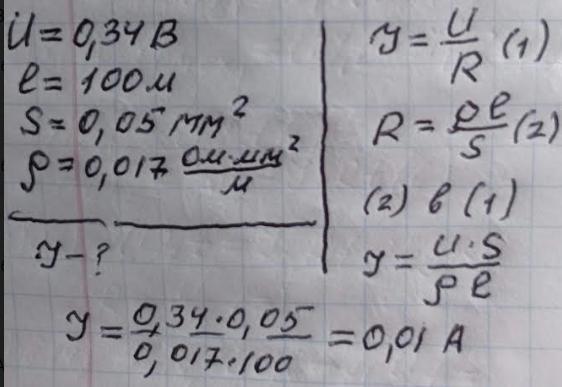 U = 0,34 В
l = 100 м
S = 0,05 мм²
ρ = 0,017 Ом·мм²/м
У - ?
У = U/R (1)
R = ρl/S (2)
(2) в (1)
У = U·S/ρl
У = 0,34·0,05/0,017·100 = 0,01 А